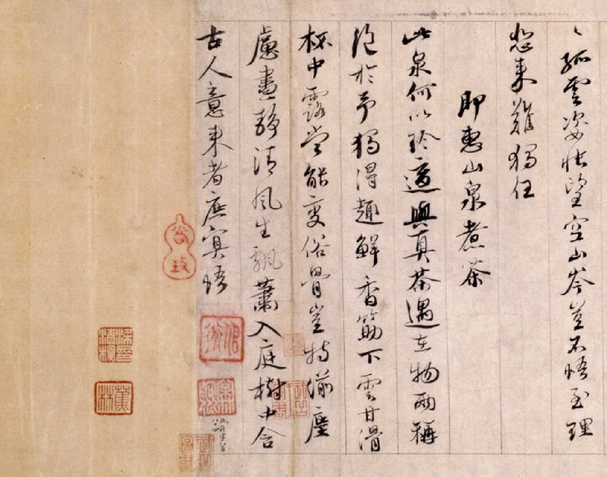 孤雲姿悵望空山岑豈不悟至理
來難獨任
即惠山泉煮茶
此泉何以珍適與真茶遇在物兩稱
絕於予獨得趣鮮香筯下雲甘滑
杯中露當能變俗骨豈特湔塵
慮晝靜清風生飄蕭入庭樹中含
古人意來者庶冥悟